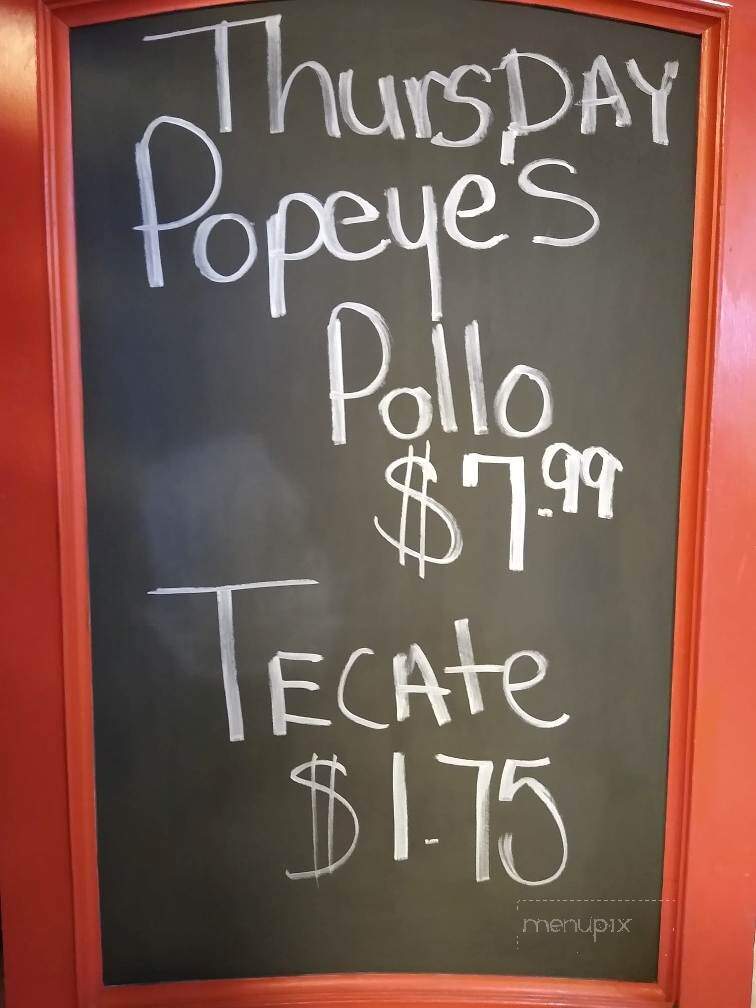 ThursDAY
Popeye's
Pollo
$7.99
TECAte
$1.75
menupix